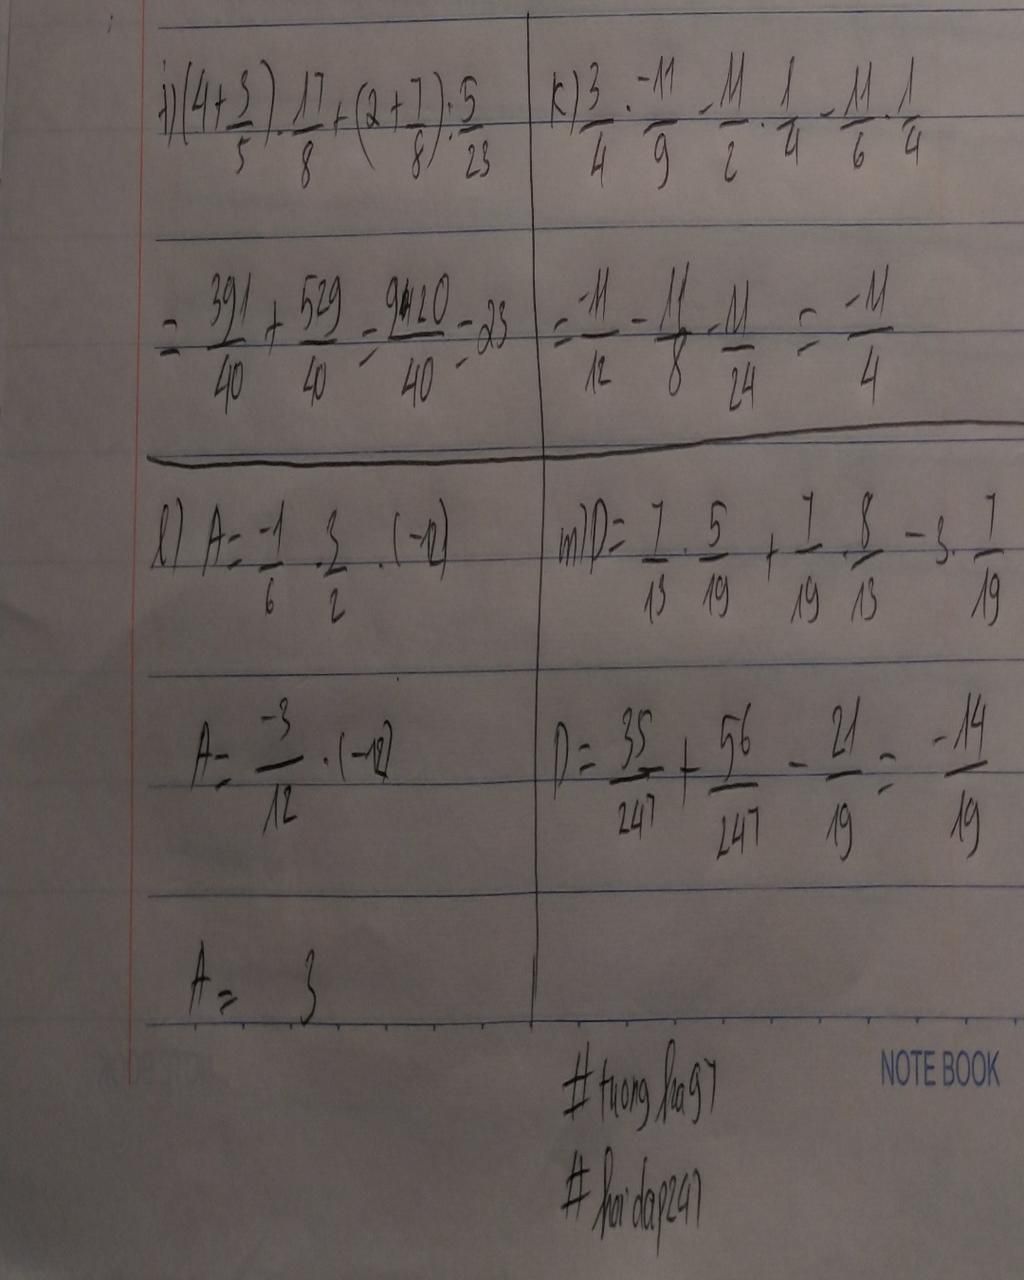 i) (4+3/5) . 17/8 + (2+7/8) : 5/23
= 391/40 + 529/40 = 920/40 = 23
k) 3/4 . -11/9 - 11/2 . 1/4 - 11/6 . 1/4
= -11/12 - 11/8 - 11/24 = -11/4
l) A = -1/6 . 3/2 . (-12)
A = -3/12 . (-12)
A = 3
m) D = 7/13 . 5/19 + 7/19 . 8/13 - 3 . 7/19
D = 35/247 + 56/247 - 21/19 = -14/19
NOTE BOOK
#hoidap247